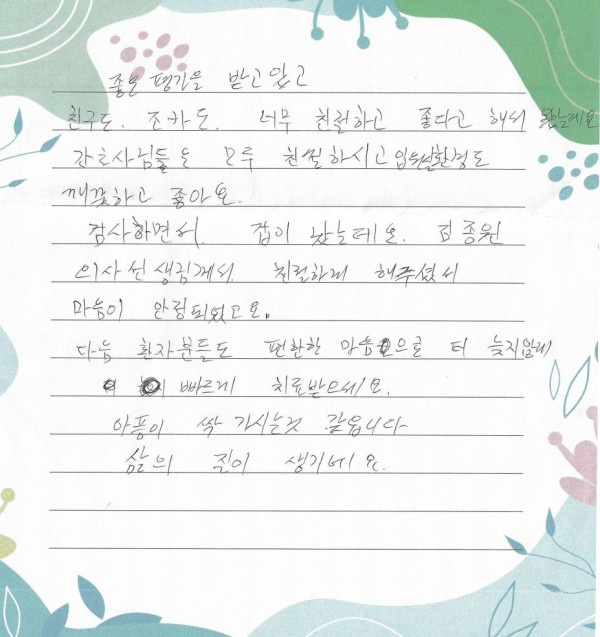 좋은 평가을 받고 있고
친구도. 조카도. 너무 친절하고 좋다고 해서 왔는데요
간호사님들은 모두 친절하시고 입원실환경도
깨끗하고 좋아요.
검사하면서. 겁이 났는데요. 피종원
의사선생님께서. 친절하게 해주셨서
마음이 안정되었고요.
다음 환자분들도 편안한 마음으로 더 늦지않게
빠르게 치료받으세요.
아픔이 싹 가시는것 같읍니다
삶의 질이 생기네요.